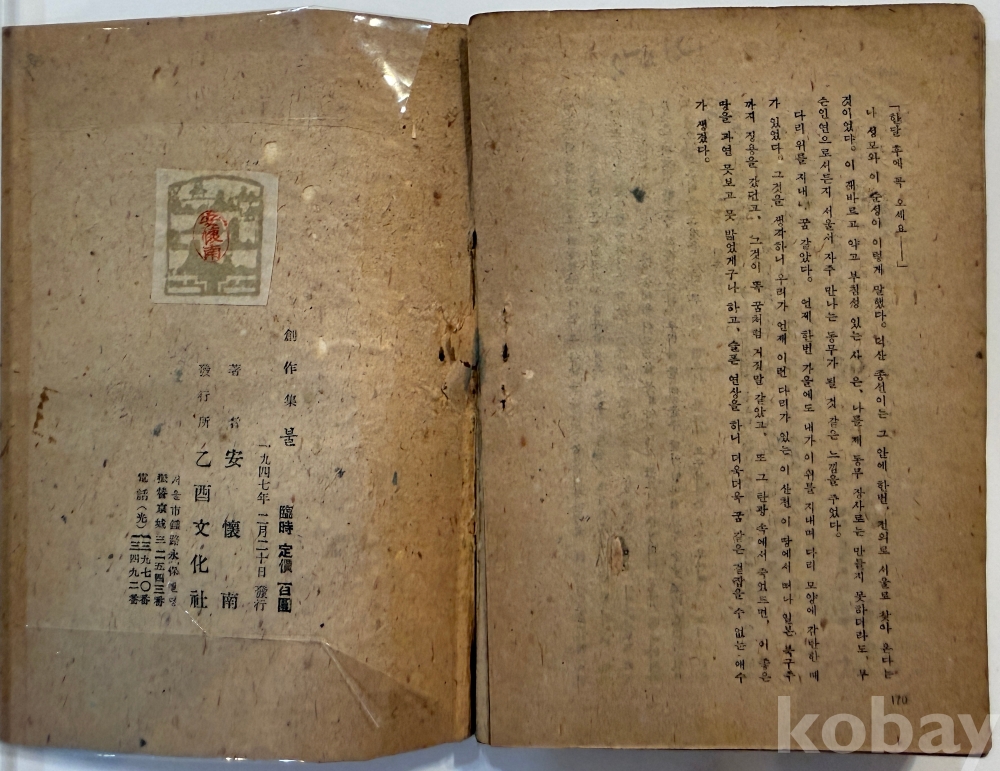 「한달 후에 꼭 오세요——」
이 순성이 이렇게 말했다. 덕산 종선이는 그 안에 한번, 전의로 서울로 찾아 온다는
것이었다. 이 잽바르고 약고 부친성 있는 사 은, 나를 제 동무 장사로는 만들지 못하더라도, 무
슨인연으로서든지 서울서 자주 만나는 동무가 될 것 같은 느낌을 주었다.
다리 위를 지내니 꿈 같았다. 언제 한번 가을에도 내가 이 지내며 다리 모양에 감탄한 때
가 있었다. 그것을 생각하니 우리가 언제 이런 다리가 있는 이 산천 이 땅에서 떠나 일본 북구주
까지 징용을 갔던고, 그것이 똑 꿈처럼 거짓말 같았고, 또 그 탄광 속에서 죽었드면, 이 좋은
땅을 과연 못보고 못 밟었게구나 하고, 슬픈 연상을 하니 더욱더욱 꿈 같은 걸잡을 수 없는 애수
가 생겼다.
170
創作集 불
臨時 定價 百圓
一九四七年 二月二十日 發行
著者 安懷南
發行所 乙酉文化社
서울市鍾路永保빌딩
振替京城三二五四三番
電話(光)
三九七〇番
三四九二番
安懷南
kobay